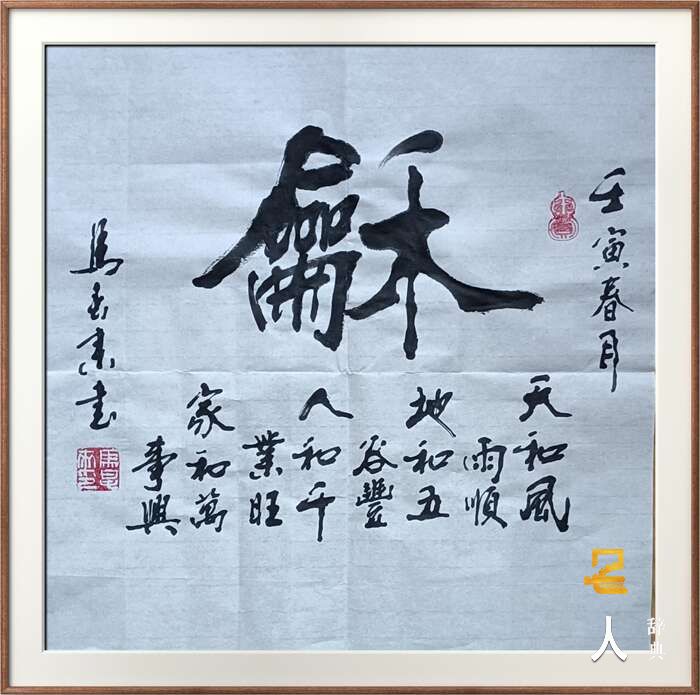 壬寅春月
龢
天和風
雨順
地和五
谷豐
人和千
業旺
家和萬
事興
名人
辞典